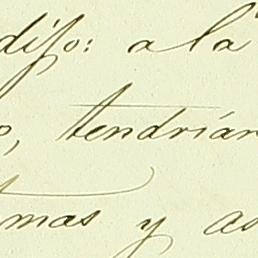 dijo: a la
o, tendrían
mas y as